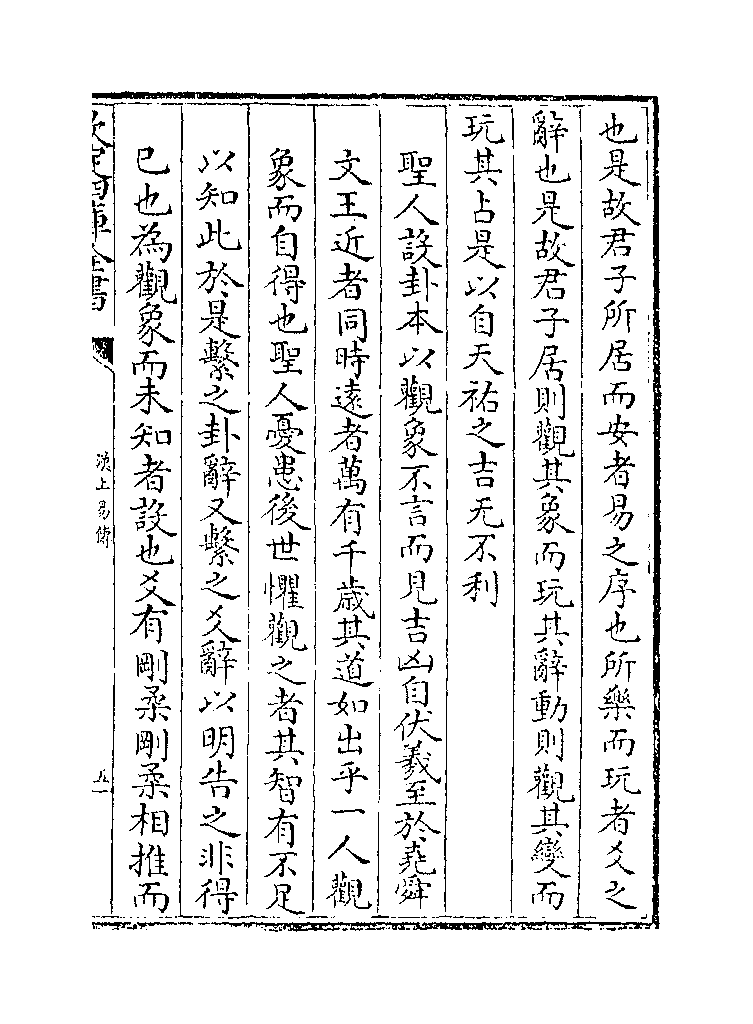 也是故君子所居而安者易之序也所樂而玩者爻之
辭也是故君子居則觀其象而玩其辭動則觀其變而
玩其占是以自天祐之吉无不利
聖人設卦本以觀象不言而見吉凶自伏羲至於堯舜
文王近者同時遠者萬有千歲其道如出乎一人觀
象而自得也聖人憂患後世懼觀之者其智有不足
以知此於是繫之卦辭又繫之爻辭以明告之非得
已也為觀象而未知者設也爻有剛柔剛柔相推而
欽定四庫全書
漢上易傳
五